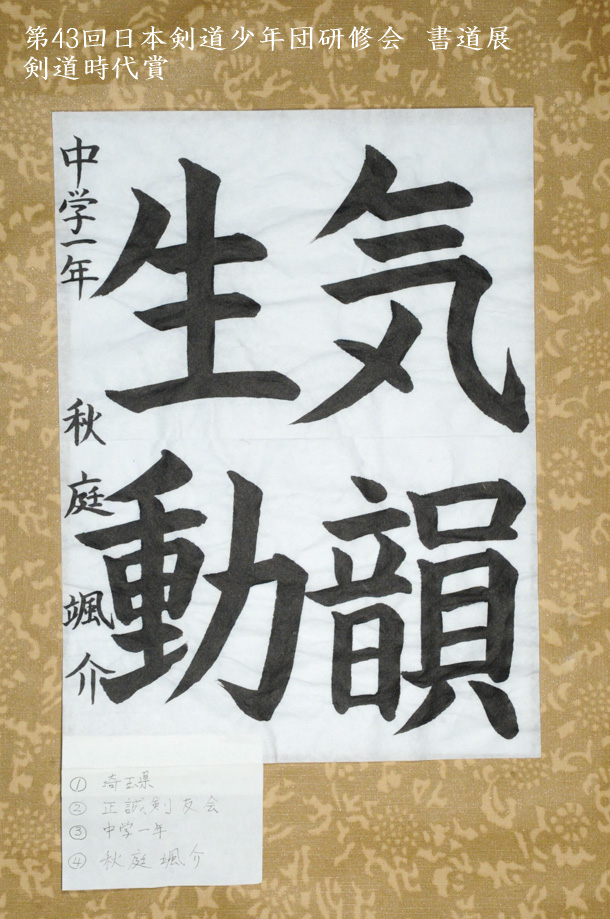 第43回日本剣道少年団研修会 書道展
剣道時代賞
気韻
生動
中学一年 秋庭颯介
① 埼玉県
② 正誠剣友会
③ 中学一年
④ 秋庭颯介